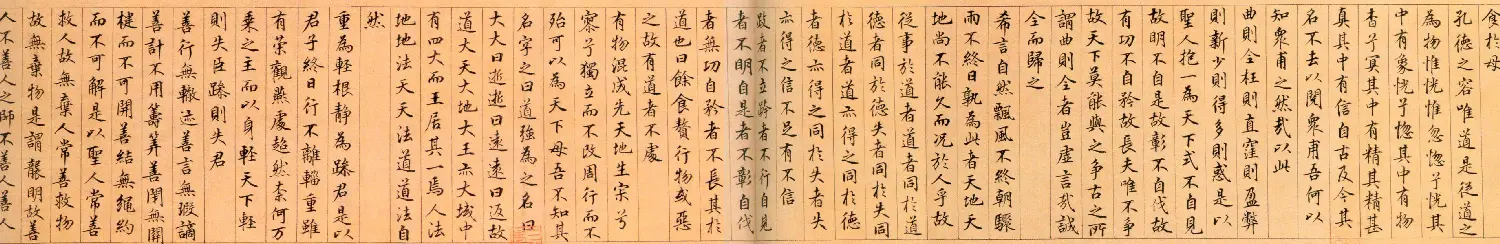 食於母
孔德之容唯道是從道之
為物惟恍惟忽惚兮恍其
中有象恍兮惚其中有物
杳兮冥其中有精其精甚
真其中有信自古及今其
名不去以閱眾甫吾何以
知眾甫之然哉以此
曲則全枉則直窪則盈弊
則新少則得多則惑是以
聖人抱一為天下式不自見
故明不自是故彰不自伐故
有功不自矜故長夫唯不爭
故天下莫能與之爭古之所
謂曲則全者豈虛言哉誠
全而歸之
希言自然飄風不終朝驟
雨不終日孰為此者天地天
地尚不能久而況於人乎故
從事於道者道者同於道
德者同於德失者同於失同
於道者道亦得之同於德
者德亦得之同於失者失
亦得之信不足有不信
跂者不立跨者不行自見
者不明自是者不彰自伐
者無功自矜者不長其於
道也曰餘食贅行物或惡
之故有道者不處
有物混成先天地生寂兮
寥兮獨立而不改周行而不
殆可以為天下母吾不知其
名字之曰道強為之名曰
大大曰逝逝曰遠遠曰返故
道大天大地大王亦大域中
有四大而王居其一焉人法
地地法天天法道道法自
然
重為輕根靜為躁君是以
君子終日行不離輜重雖
有榮觀燕處超然柰何万
乘之主而以身輕天下輕
則失臣躁則失君
善行無轍迹善言無瑕謫
善計不用籌筭善閉無關
楗而不可開善結無繩約
而不可解是以聖人常善
救人故無棄人常善救物
故無棄物是謂襲明故善
人不善人之師不善人善人